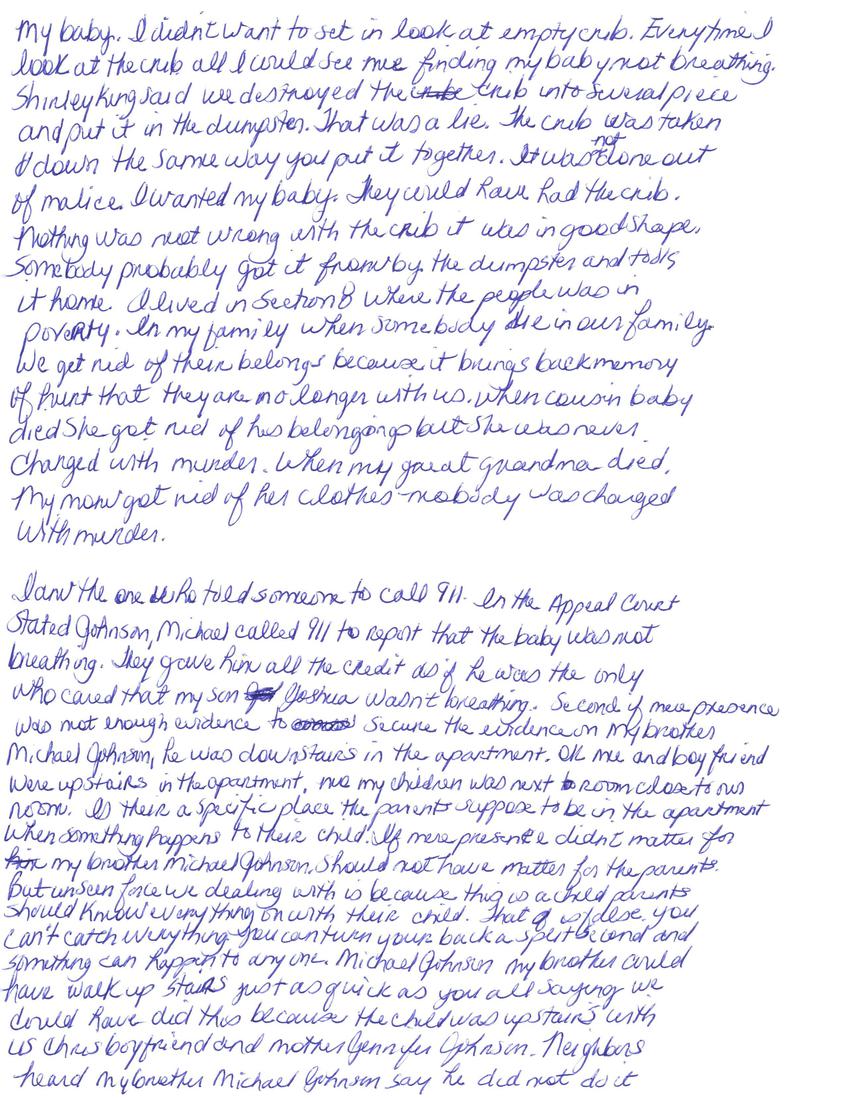 My baby. I didn't want to set in look at empty crib. Everytime I
look at the crib all I could see me finding my baby not breathing.
Shirley King said we destroyed the crib into several piece
and put it in the dumpster. That was a lie. The crib was taken
down the same way you put it together. It was not done out
of malice. I wanted my baby. They could have had the crib.
Nothing was not wrong with the crib it was in good shape.
Somebody probably got it from by the dumpster and tooks
it home. I lived in Section 8 where the people was in
poverty. In my family when somebody die in our family.
We get rid of their belongs because it brings back memory
of hurt that they are no longer with us. When cousin baby
died She got rid of his belongings but She was never
Charged with murder. When my great grandma died,
My mom got rid of her clothes nobody was charged
With murder.
I am the one who told someone to call 911. In the Appeal Court
Stated Johnson, Michael called 911 to report that the baby was not
breathing. They gave him all the credit as if he was the only
who cared that my son Joshua wasn't breathing. Second if mere presence
was not enough evidence to secure the evidence on my brother
Michael Johnson, he was downstairs in the apartment. OK me and boyfriend
were upstairs in the apartment, my children was next room close to our
room. Is their a specific place the parents suppose to be in the apartment
when something happens to their child. If mere presence didn't matter for
my brother Michael Johnson. Should not have matter for the parents.
But unseen force we dealing with is because this is a child parents
should know everything on with their child. That is false, you
can't catch everything you can turn your back a split second and
something can happen to anyone. Michael Johnson my brother could
have walk up stairs just as quick as you all saying we
could have did this because the child was upstairs with
us Chris boyfriend and mother Jennifer Johnson. Neighbors
heard my brother Michael Johnson say he did not do it